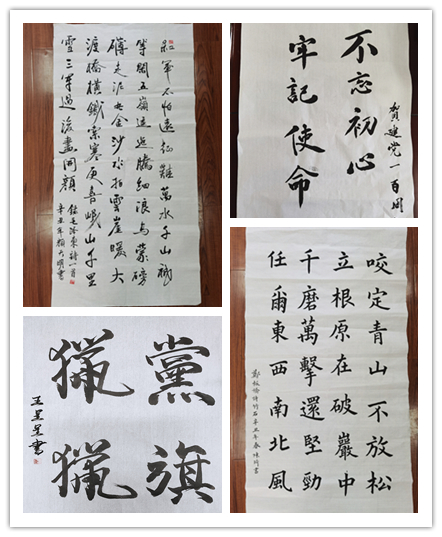 紅軍不怕遠征難萬水千山祇
等閑五嶺逶迤騰細浪烏蒙磅
礴走泥丸金沙水拍雲崖暖大
渡橋橫鐵索寒更喜岷山千里
雪三軍過後盡開顏
錄毛澤東詩一首
辛丑年
賀建党一百周
不忘初心
牢記使命
黨旗
獵獵
咬定青山不放松
立根原在破巖中
千磨萬擊還堅勁
任爾東西南北風
鄭板橋詩竹石辛丑年春